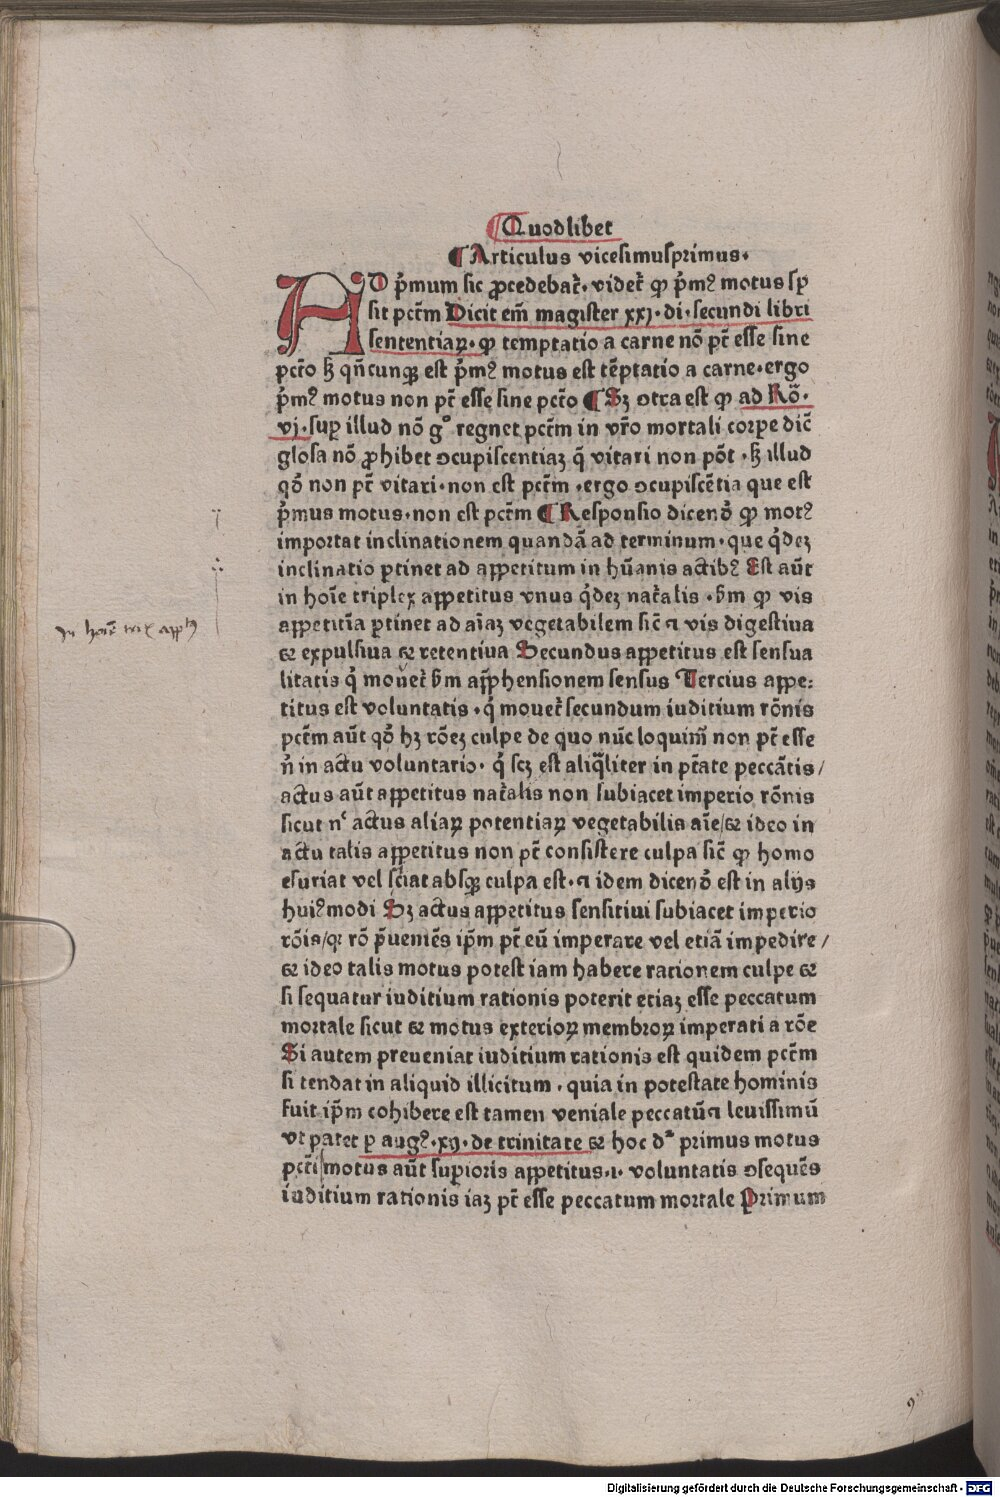 ¶Quodlibet
¶Articulus vicesimusprimus·
AD p̄mum sic ꝓcedebat᷑· videt᷑ ꝙ p̄mꝰ motus sꝑ
sit pctm̄ Dicit em̄ magister xxj· di· secundi libri
sententiaꝝ· ꝙ temptatio a carne nō pt̄ esse sine
pctō sꝫ qn̄cunqꝫ est p̄mꝰ motus est tēptatio a carne·ergo
p̄mꝰ motus non pt̄ esse sine pctō ¶Sꝫ ꝯtra est ꝙ ad Rō·
vj·suꝑ illud nō gͦ regnet pctm̄ in vr̄o mortali corpe dic̄
glosa nō ꝓhibet ꝯcupiscentiaꝫ q̄ vitari non pōt ·sꝫ illud
qḋ non pt̄ vitari·non est pctm̄ ·ergo ꝯcupiscētia que est
p̄mus motus·non est pctm̄ ¶Responsio dicenḋ ꝙ motꝰ
importat inclinationem quandā ad terminum·que qͥdeꝫ
inclinatio ꝑtinet ad appetitum in hūanis actibꝰ Est aūt
in hoīe triplex appetitus vnus qͥdeꝫ nat᷑alis ·ẜm ꝙ vis
appetitīa ꝑtinet ad aīaꝫ vegetabilem sic̄ ⁊ vis digestiua
⁊ expulsiua ⁊ retentiua Secundus appetitus est sensua
litatis qͥ mouet᷑ ẜm app̄hensionem sensus Tercius appe:
titus est voluntatis ·qͥ mouet᷑ secundum iuditium rōnis
pctm̄ aūt qḋ hꝫ rōeꝫ culpe de quo nūc loquim̄ non pt̄ esse
n̄ in actu voluntario· qͥ scꝫ est aliqᷓliter in ptāte peccātis/
actus aūt appetitus nat᷑alis non subiacet imperio rōnis
sicut nͨ actus aliaꝝ potentiaꝝ vegetabilis aīe/⁊ ideo in
actu talis appetitus non pt̄ consistere culpa sic̄ ꝙ homo
esuriat vel sciat absqꝫ culpa est·⁊ idem dicenḋ est in alijs
huiꝰmodi Sꝫ actus appetitus sensitiui subiacet imperio
rōis/qꝛ rō p̄ueniēs ip̄m pt̄ eū imperare vel etiā impedire/
⁊ ideo talis motus potest iam habere rationem culpe ⁊
si sequatur iuditium rationis poterit etiaꝫ esse peccatum
mortale sicut ⁊ motus exterioꝝ membroꝝ imperati a rōe
Si autem preueniat iuditium rationis est quidem pctm̄
si tendat in aliquid illicitum · quia in potestate hominis
fuit ip̄m cohibere est tamen veniale peccatū⁊ leuissimū
vt patet ꝑ augꝰ·xij· de trinitate ⁊ hoc dᷓ primus motus
pctī/motus aūt suꝑioris appetitus·i· voluntatis ꝯsequēs
iuditium rationis iaꝫ pt̄ esse peccatum mortale Primum
Digitalisierung gefördert durch die Deutsche Forschungsgemeinschaft - DFG